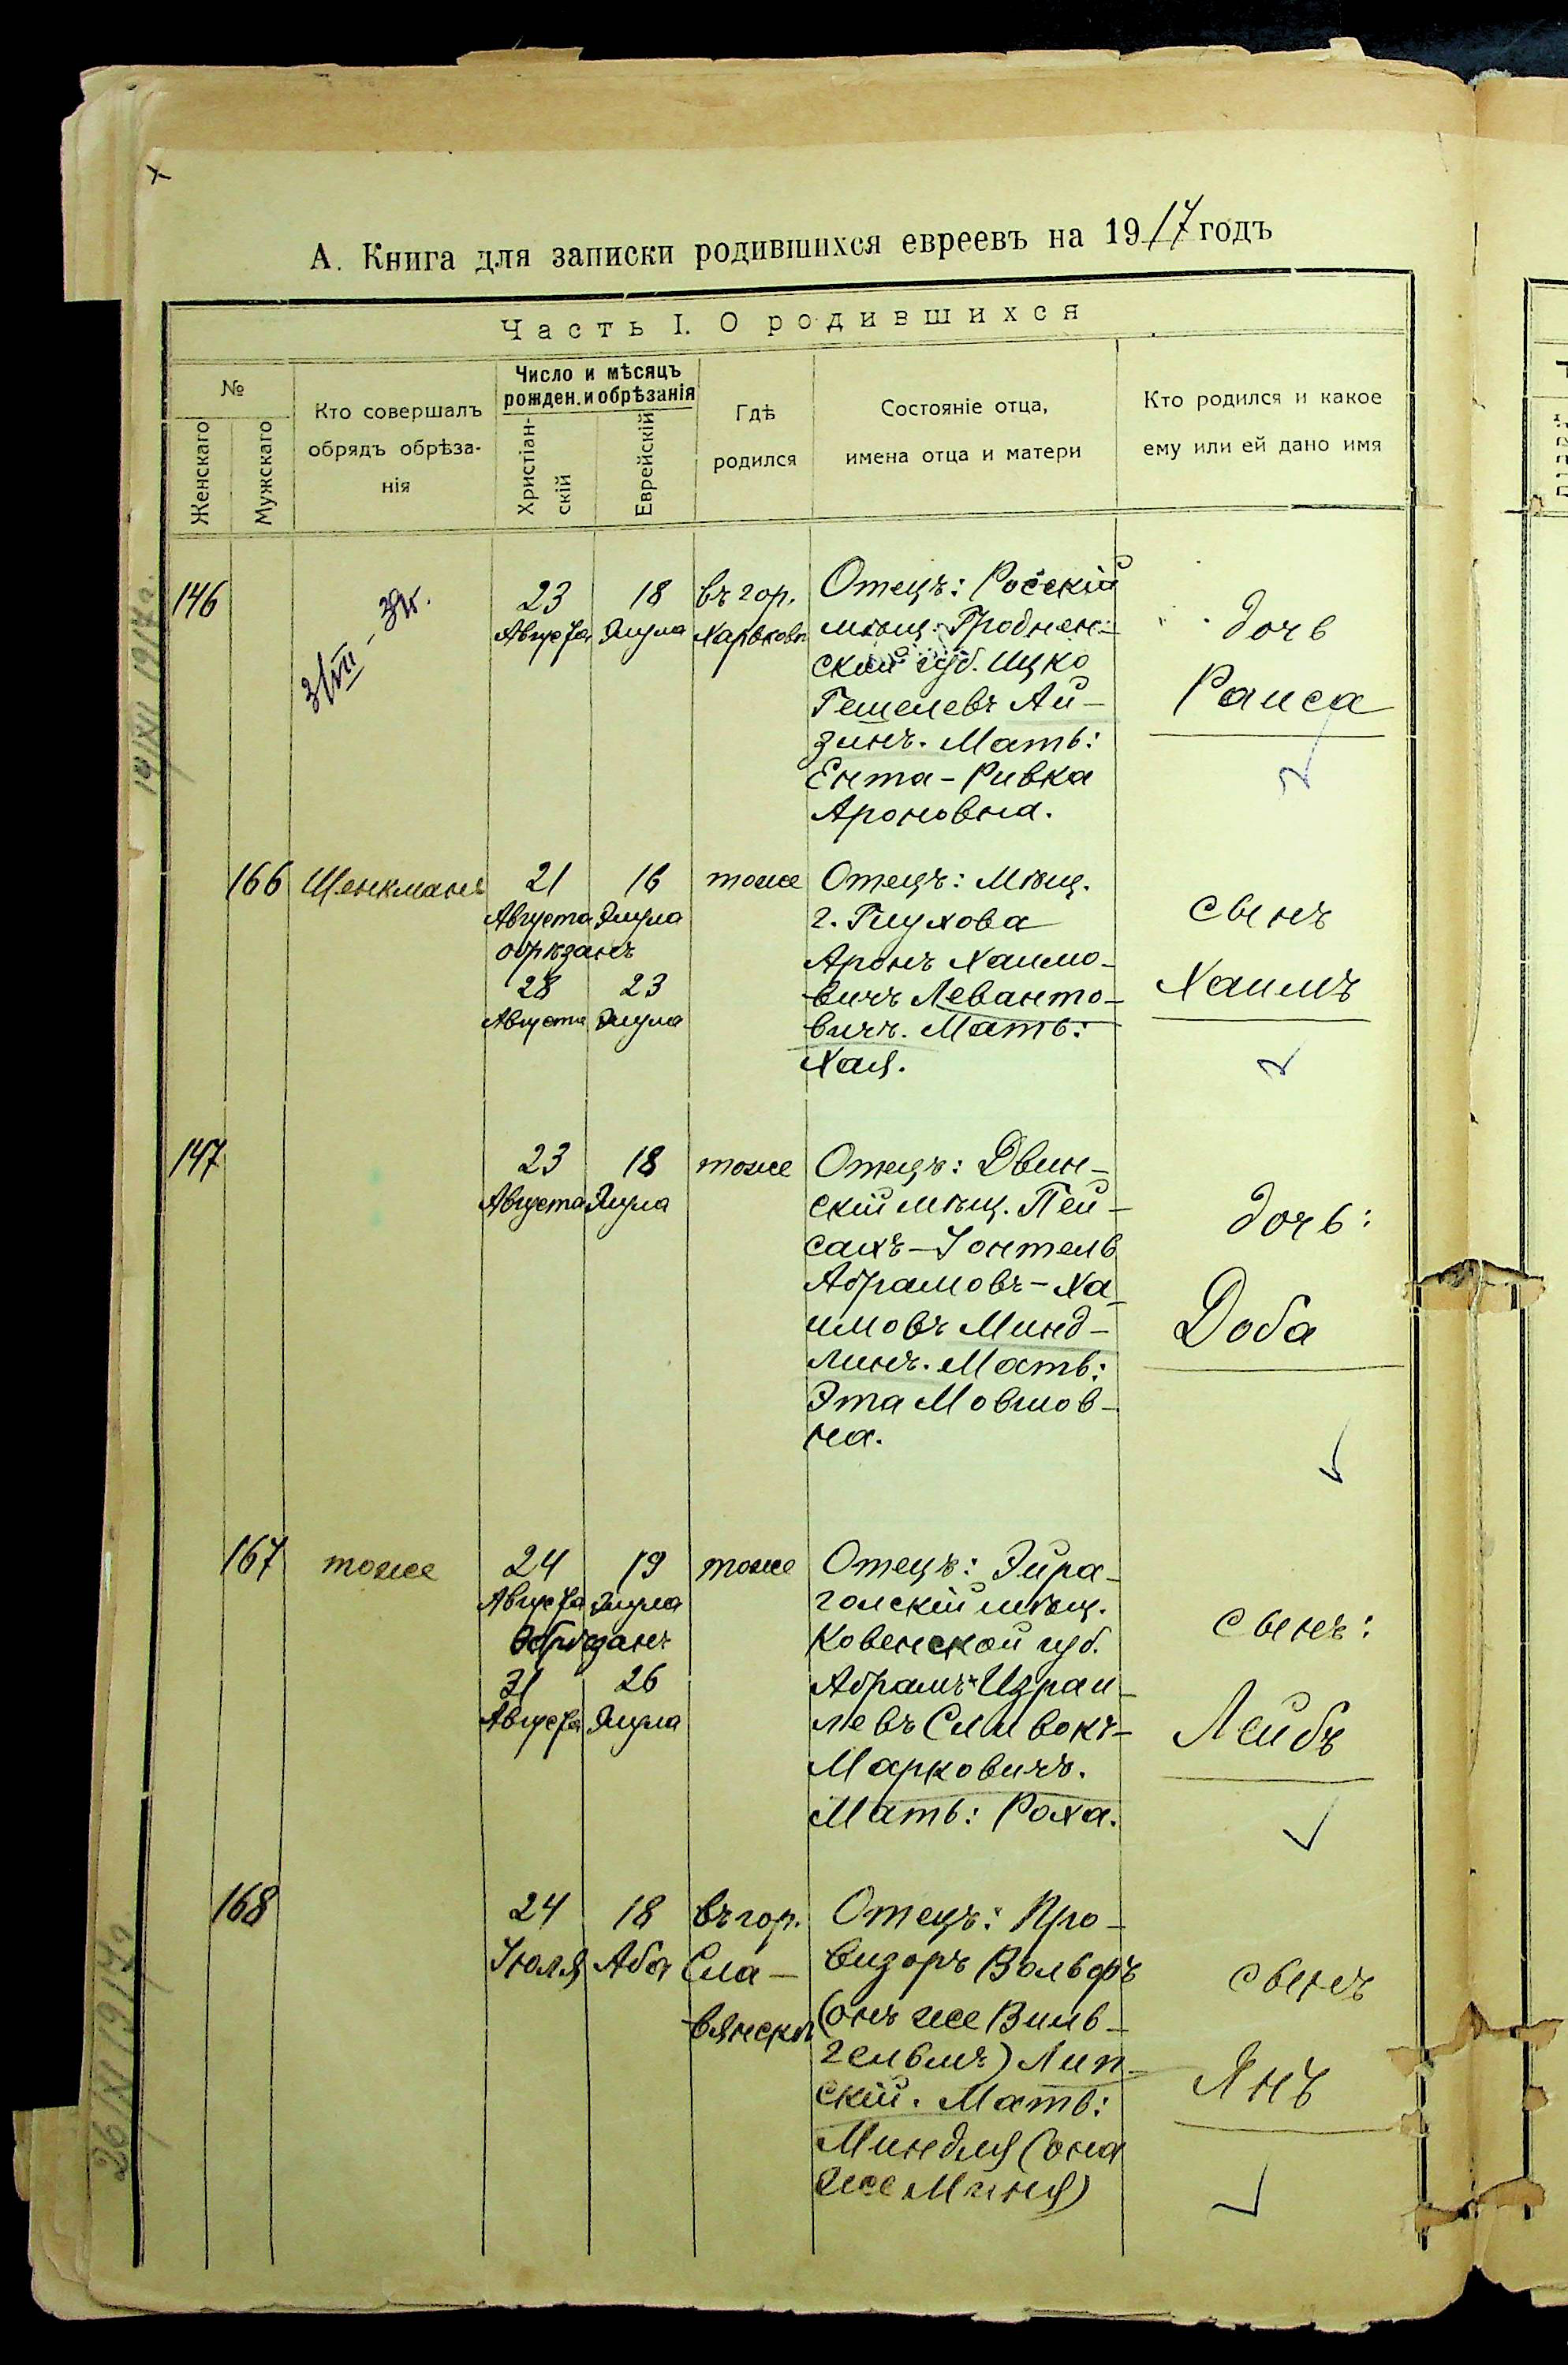 А. Книга для записки родившихся евреевъ на 1917 годъ
Часть I. О родившихся
№
Женскаго
Мужскаго
Кто совершалъ
обрядъ обрѣза-
нія
Число и мѣсяцъ
рожден. и обрѣзанія
Христіан-
скій
Еврейскій
Гдѣ
родился
Состояніе отца,
имена отца и матери
Кто родился и какое
ему или ей дано имя
146
23
Августа
18
Элула
въ гор.
Харьковѣ
Отецъ: Росскій
мѣщ. Гроднен-
ской губ. Ицко
Гешелевъ Ай-
зинъ. Мать:
Ента-Ривка
Ароновна.
дочь
Раиса
166
Шенкманъ
21
Августа
16
Элула
обрѣзанъ
28
Августа
23
Элула
тоже
Отецъ: Мѣщ.
г. Глухова
Аронъ Хаимо-
вичъ Леванто-
вичъ. Мать:
Хая.
сынъ
Хаимъ
147
23
Августа
18
Элула
тоже
Отецъ: Двин-
скій мѣщ. Пей-
сахъ-Іонтель
Абрамовъ-Ха-
имовъ Минд-
линъ. Мать:
Эта Мовшов-
на.
дочь:
Доба
167
тоже
24
Августа
19
Элула
Обрѣзанъ
31
Августа
26
Элула
тоже
Отецъ: Эйра-
гольскій мѣщ.
Ковенской губ.
Абрамъ Израи-
левъ Сливокъ-
Марковичъ.
Мать: Роха.
сынъ:
Лейбъ
168
24
Іюля
18
Аба
въ гор.
Сла-
вянскѣ
Отецъ: Про-
визоръ Вольфъ
(онъ же Виль-
гельмъ) Лип-
скій. Мать:
Миндля (она
же Миня)
сынъ
Янъ